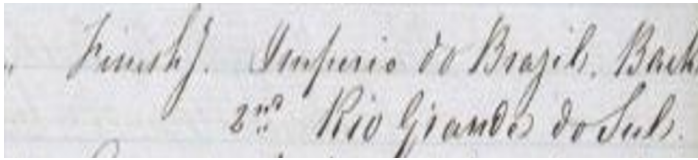 " Finish J. Imperio do Brazil. Back
2nd Rio Grande do Sul.